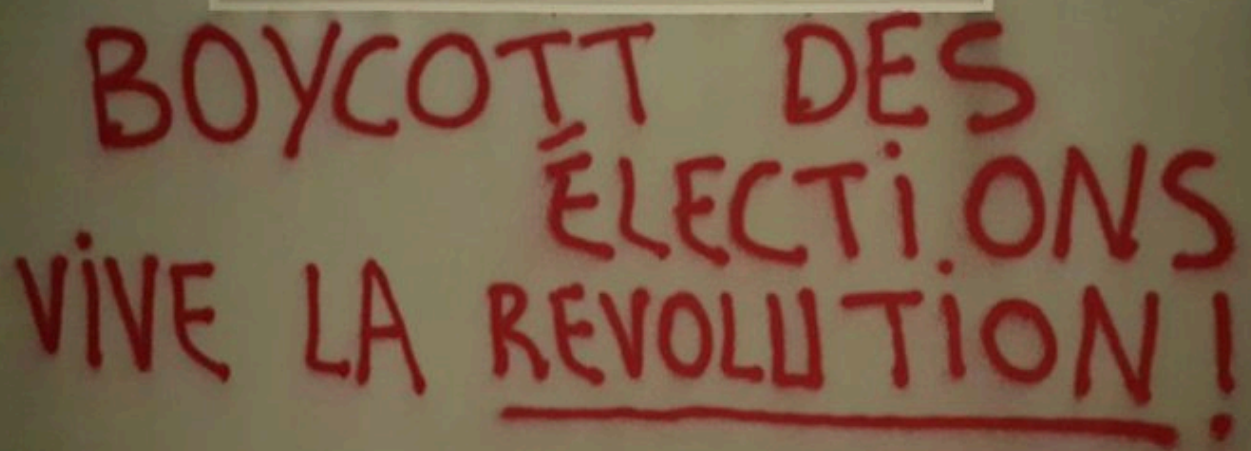 BOYCOTT DES
ÉLECTiONS
ViVE LA REVOLUTiON !